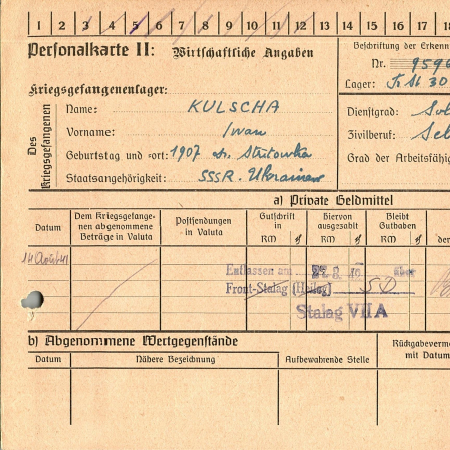 1 2 3 4 5 6 7 8 9 10 11 12 13 14 15 16 17 18
Personalkarte II: Wirtschaftliche Angaben
Beschriftung der Erkenn
Nr. 9596
Lager:
Kriegsgefangenenlager:
Des Kriegsgefangenen
Name: KULSCHA
Vorname: Iwan
Geburtstag und -ort: 1907
Staatsangehörigkeit: SSSR. Ukrainer
Dienstgrad: Sol
Zivilberuf:
Grad der Arbeitsfähig
a) Private Geldmittel
Datum
Dem Kriegsgefange-
nen abgenommene
Beträge in Valuta
Postsendungen
in Valuta
Gutschrift
in
RM ₰
Hiervon
ausgezahlt
RM ₰
Bleibt
Guthaben
RM ₰
der
Entlassen am über
Front-Stalag
Stalag VII A
b) Abgenommene Wertgegenstände
Datum
Nähere Bezeichnung
Aufbewahrende Stelle
Rückgabeverme
mit Datum